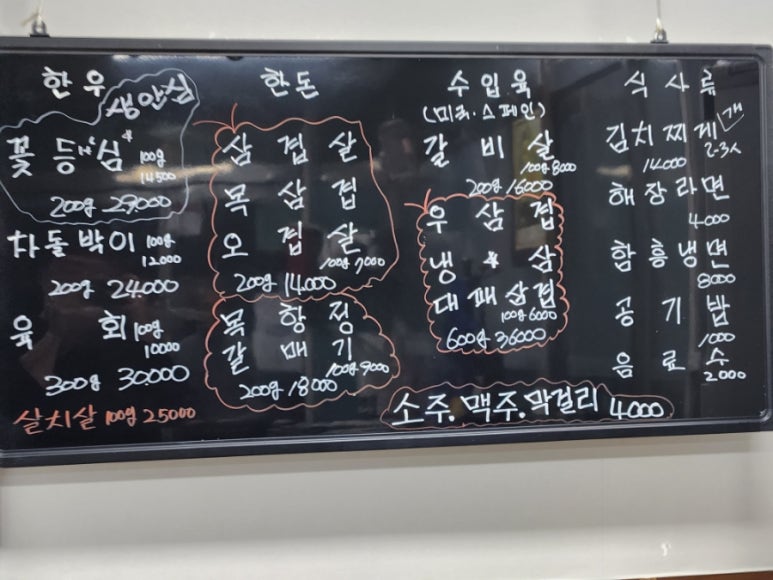 한우
생안심
꽃등심 100g
14500
200g 29,000
차돌박이 100g
12,000
200g 24,000
육회 100g
10000
300g 30,000
살치살 100g 25000
한돈
삼겹살
목삼겹
오겹살
100g 7000
200g 14,000
목항정
갈매기
100g 9000
200g 18000
수입육
(미국·스페인)
갈비살
100g 8000
200g 16000
우삼겹
냉삼
대패삼겹
100g 6000
600g 36000
식사류
김치찌게
2-3人
14000
해장라면
4000
함흥냉면
8000
공기밥
1000
음료수
2000
소주.맥주.막걸리 4000